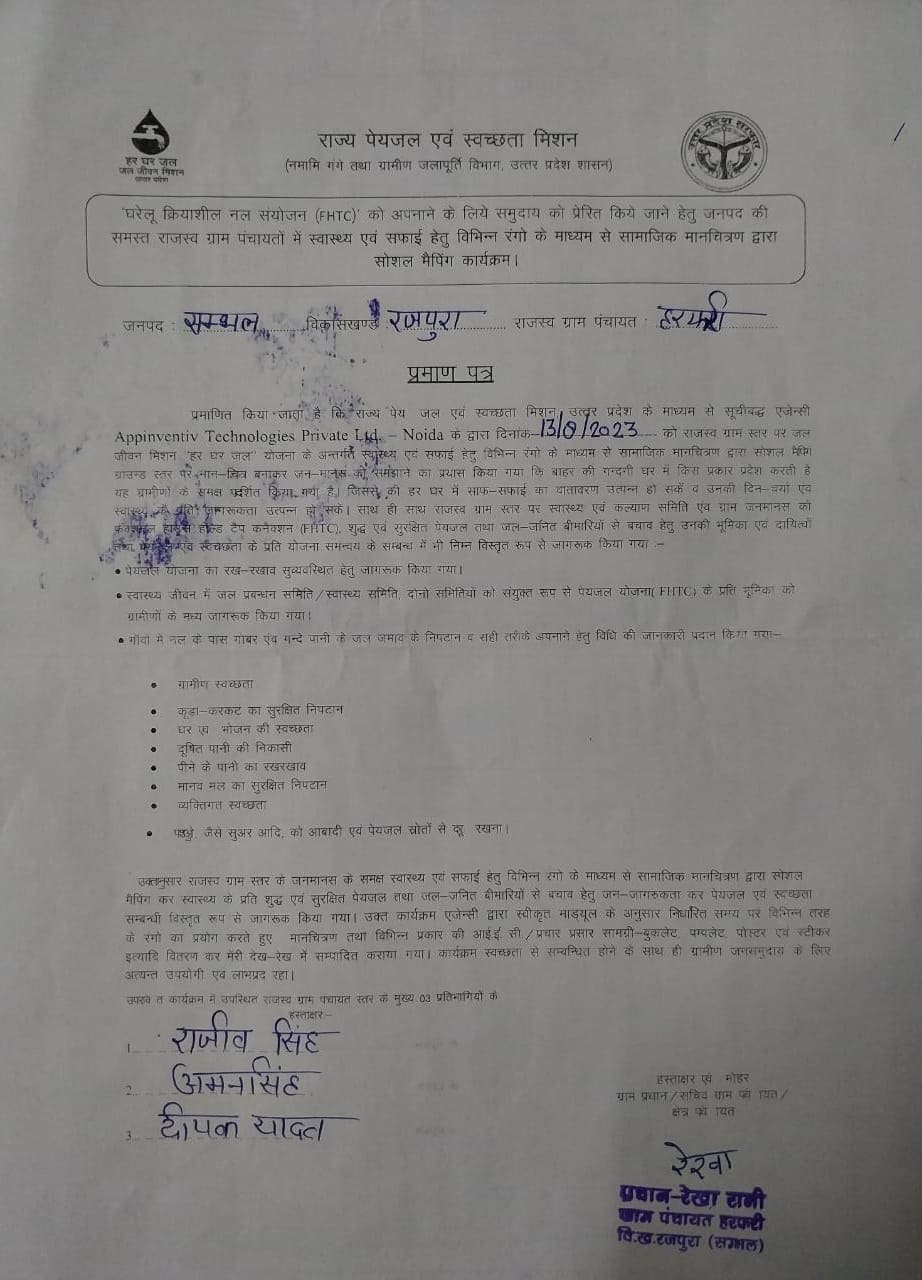 हर घर जल
जल जीवन मिशन
उत्तर प्रदेश
राज्य पेयजल एवं स्वच्छता मिशन
(नमामि गंगे तथा ग्रामीण जलापूर्ति विभाग, उत्तर प्रदेश शासन)
उत्तर प्रदेश सरकार
'घरेलू क्रियाशील नल संयोजन (FHTC)' को अपनाने के लिये समुदाय को प्रेरित किये जाने हेतु जनपद की
समस्त राजस्व ग्राम पंचायतों में स्वास्थ्य एवं सफाई हेतु विभिन्न रंगो के माध्यम से सामाजिक मानचित्रण द्वारा
सोशल मैपिंग कार्यक्रम।
जनपद : सम्भल विकासखण्ड रजपुरा राजस्व ग्राम पंचायत : हरफरी
प्रमाण पत्र
प्रमाणित किया जाता है कि राज्य पेय जल एवं स्वच्छता मिशन, उत्तर प्रदेश के माध्यम से सूचीबद्ध एजेन्सी
Appinventiv Technologies Private Ltd. – Noida के द्वारा दिनांक 13/8/2023 को राजस्व ग्राम स्तर पर जल
जीवन मिशन "हर घर जल" योजना के अन्तर्गत स्वास्थ्य एवं सफाई हेतु विभिन्न रंगों के माध्यम से सामाजिक मानचित्रण द्वारा सोशल मैपिंग
ग्राउन्ड स्तर पर मान–चित्र बनाकर जन–मानस को समझाने का प्रयास किया गया कि बाहर की गन्दगी घर में किस प्रकार प्रवेश करती है
यह ग्रामीणों के समक्ष प्रदर्शित किया गया है। जिससे की हर घर में साफ–सफाई का वातावरण उत्पन्न हो सकें व उनकी दिन–चर्या एंव
स्वास्थ्य के प्रति जागरूकता उत्पन्न हो सके। साथ ही साथ राजस्व ग्राम स्तर पर स्वास्थ्य एवं कल्याण समिति एंव ग्राम जनमानस को
फंक्शनल हाउस होल्ड टैप कनेक्शन (FHTC), शुद्ध एवं सुरक्षित पेयजल तथा जल–जनित बीमारियों से बचाव हेतु उनकी भूमिका एवं दायित्वों
तथा पेयजल एंव स्वच्छता के प्रति योजना समन्वय के सम्बन्ध में भी निम्न विस्तृत रूप से जागरूक किया गया :–
• पेयजल योजना का रख–रखाव सुव्यवस्थित हेतु जागरूक किया गया।
• स्वास्थ्य जीवन में जल प्रबन्धन समिति/स्वास्थ्य समिति, दोनो समितियों को संयुक्त रूप से पेयजल योजना( FHTC) के प्रति भूमिका को
ग्रामीणों के मध्य जागरूक किया गया।
• गॉवो में नल के पास गोबर एंव गन्दे पानी के जल जमाव के निपटान व सही तरीके अपनाने हेतु विधि की जानकारी प्रदान किया गया–
• ग्रामीण स्वच्छता
• कूड़ा–करकट का सुरक्षित निपटान
• घर एव भोजन की स्वच्छता
• दूषित पानी की निकासी
• पीने के पानी का रखरखाव
• मानव मल का सुरक्षित निपटान
• व्यक्तिगत स्वच्छता
• जैसे सुअर आदि, को आबादी एवं पेयजल स्रोतों से दूर रखना।
उक्तानुसार राजस्व ग्राम स्तर के जनमानस के समक्ष स्वास्थ्य एवं सफाई हेतु विभिन्न रंगो के माध्यम से सामाजिक मानचित्रण द्वारा सोशल
मैपिंग कर स्वास्थ्य के प्रति शुद्ध एवं सुरक्षित पेयजल तथा जल–जनित बीमारियों से बचाव हेतु जन–जागरूकता कर पेयजल एवं स्वच्छता
सम्बन्धी विस्तृत रूप से जागरूक किया गया। उक्त कार्यक्रम एजेन्सी द्वारा स्वीकृत माड्यूल के अनुसार निर्धारित समय पर विभिन्न तरह
के रंगो का प्रयोग करते हुए मानचित्रण तथा विभिन्न प्रकार की आई.ई.सी./प्रचार प्रसार सामग्री–बुकलेट, पम्पलेट, पोस्टर एवं स्टीकर
इत्यादि वितरण कर मेरी देख–रेख में सम्पादित कराया गया। कार्यक्रम स्वच्छता से सम्बन्धित होने के साथ ही ग्रामीण जनसमुदाय के लिए
अत्यन्त उपयोगी एवं लाभप्रद रहा।
उपरोक्त कार्यक्रम में उपस्थित राजस्व ग्राम पंचायत स्तर के मुख्य 03 प्रतिभागियों के
हस्ताक्षर:–
1. राजीव सिंह
2. अमनसिंह
3. दीपक यादव
हस्ताक्षर एवं मोहर
ग्राम प्रधान/सचिव ग्राम पंचायत/
क्षेत्र पंचायत
रेखा
प्रधान-रेखा रानी
ग्राम पंचायत हरफरी
वि.ख.रजपुरा (सम्भल)